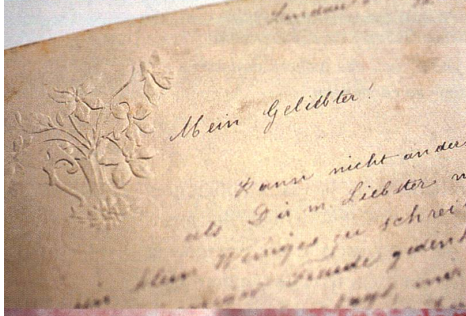 Lindau
Mein Geliebter!
Kann nicht anders
als Dir m Liebster
ein klein Weniges zu schrei
Freude gedenk